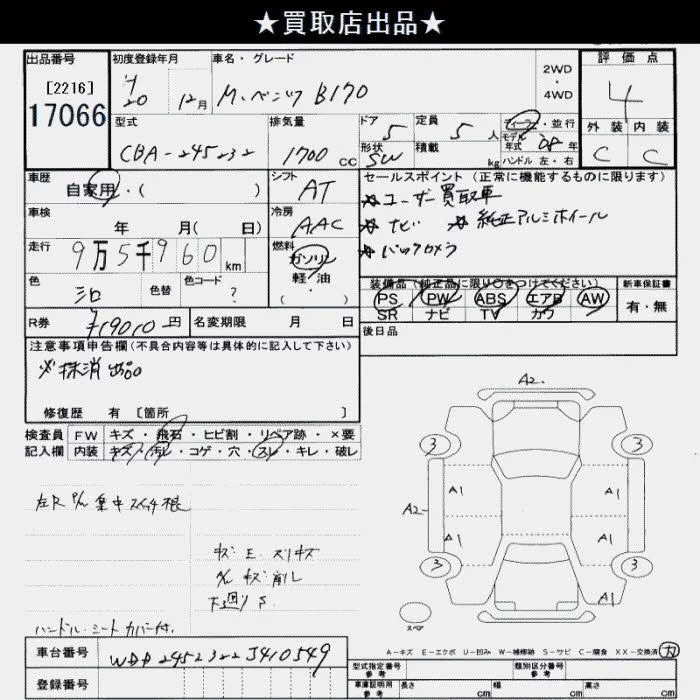 ★買取店出品★
出品番号 初度登録年月 車名・グレード 2WD・4WD 評価点
[2216]
17066 H20 12月 M.ベンツ B170 4
型式 排気量 ドア 定員 ディーラー・並行 外装 内装
CBA-245232 1700cc 5 5人 モデル年式 08年 C C
形状 SW 積載 kg ハンドル 左・右
車歴 自家用・( ) シフト AT セールスポイント(正常に機能するものに限ります)
☆ユーザー買取車
車検 年 月( 日) 冷房 AAC ☆ナビ ☆純正アルミホイール
走行 9万5千960km 燃料 ガソリン ☆バックカメラ
軽・油
・( )
色 シロ 色替 色コード ? 装備品(純正品に限り○をつけてください) 新車保証書
PS PW ABS エアB AW 有・無
SR ナビ TV カワ
R券 ¥19010円 名変期限 月 日 後日品
注意事項申告欄(不具合内容等は具体的に記入して下さい)
※抹消出品
修復歴 有 [箇所 ]
検査員 FW キズ・飛石・ヒビ割・リペア跡・×要
記入欄 内装 キズ・汚レ・コゲ・穴・スレ・キレ・破レ
A2.
3 3
A1 A1
A2-
A1 A1
3 3
A1
スペア
キズ E. スリキズ
キズ 削レ
下廻り S
ハンドル・シート カバー付.
A-キズ E-エクボ U-凹み W-補修跡 S-サビ C-腐食 XX-交換済
車台番号 WDD2452322J410549
登録番号
型式指定番号 参考 類別区分番号 参考
車庫証明用 参考 長さ cm 幅 cm 高さ cm